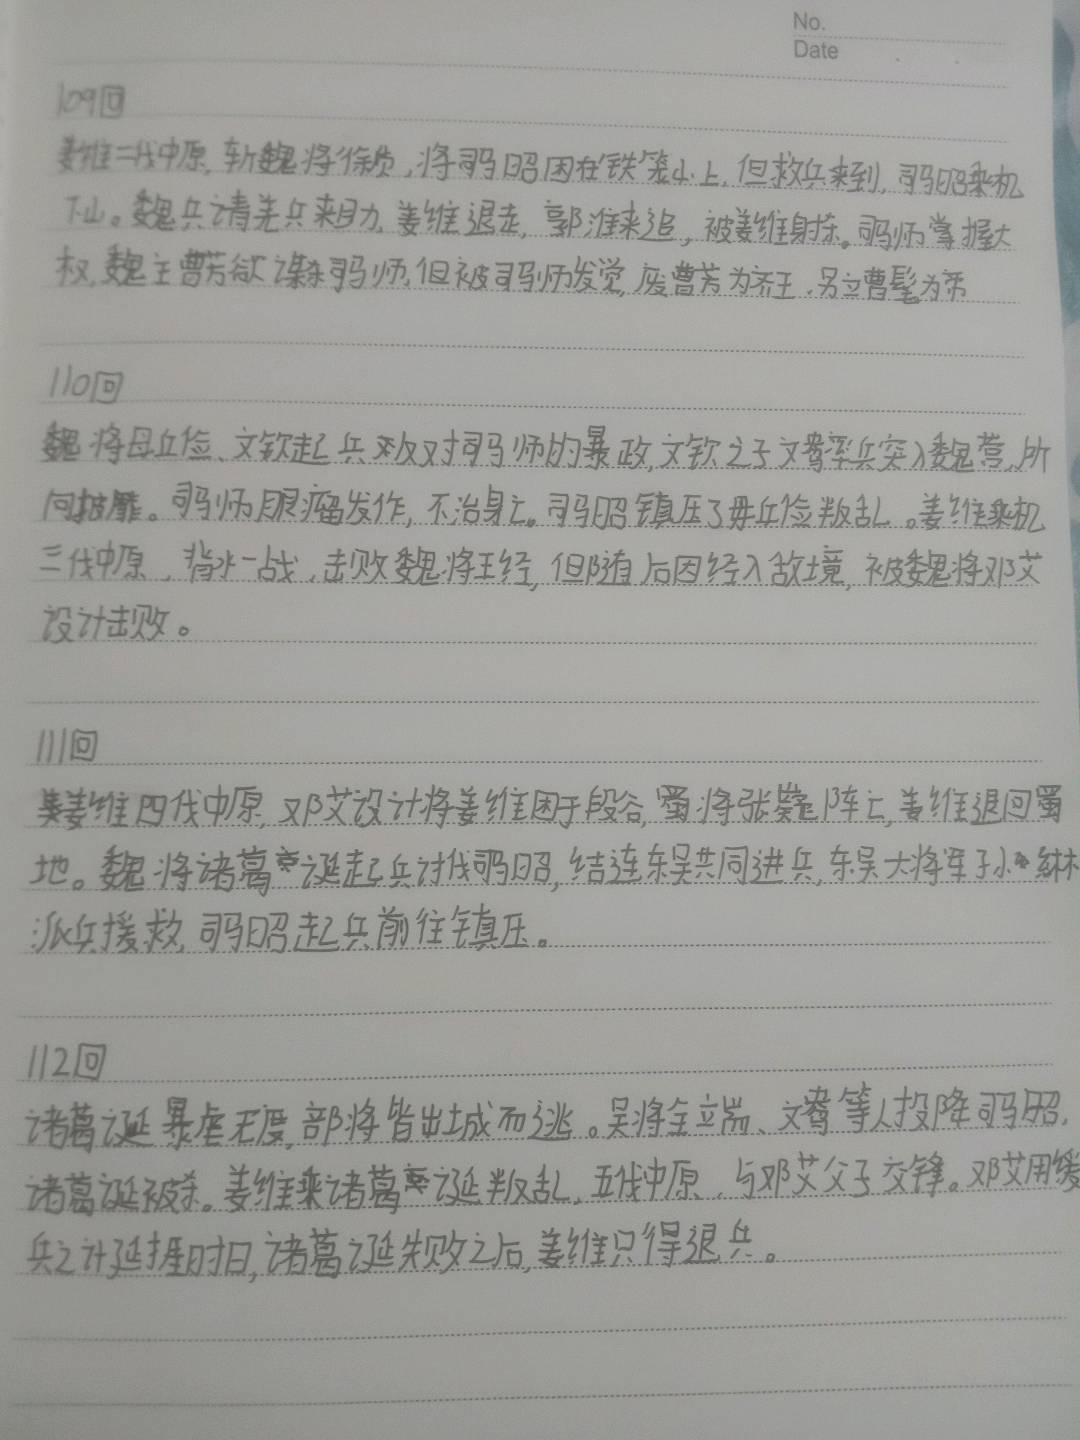 No.
Date
109回
姜维二伐中原,斩魏将徐质,将司马昭困在铁笼山上,但救兵来到,司马昭乘机
下山。魏兵请羌兵来助力,姜维退走,郭淮来追,被姜维射杀。司马师掌握大
权,魏主曹芳欲谋杀司马师,但被司马师发觉,废曹芳为齐王,另立曹髦为帝
110回
魏将母丘俭、文钦起兵反对司马师的暴政,文钦之子文鸯率兵突入魏营,所
向披靡。司马师眼瘤发作,不治身亡。司马昭镇压了毋丘俭叛乱。姜维乘机
三伐中原,背水一战,击败魏将王经,但随后因经入敌境,被魏将邓艾
设计击败。
111回
姜维四伐中原,邓艾设计将姜维困于段谷,蜀将张嶷阵亡,姜维退回蜀
地。魏将诸葛诞起兵讨伐司马昭,结连东吴共同进兵,东吴大将军子小綝
派兵援救,司马昭起兵前往镇压。
112回
诸葛诞暴虐无度,部将皆出城而逃。吴将全立耑、文鸯等人投降司马昭,
诸葛诞被杀。姜维乘诸葛诞叛乱,五伐中原,与邓艾父子交锋。邓艾用缓
兵之计延捱时日,诸葛诞失败之后,姜维只得退兵。